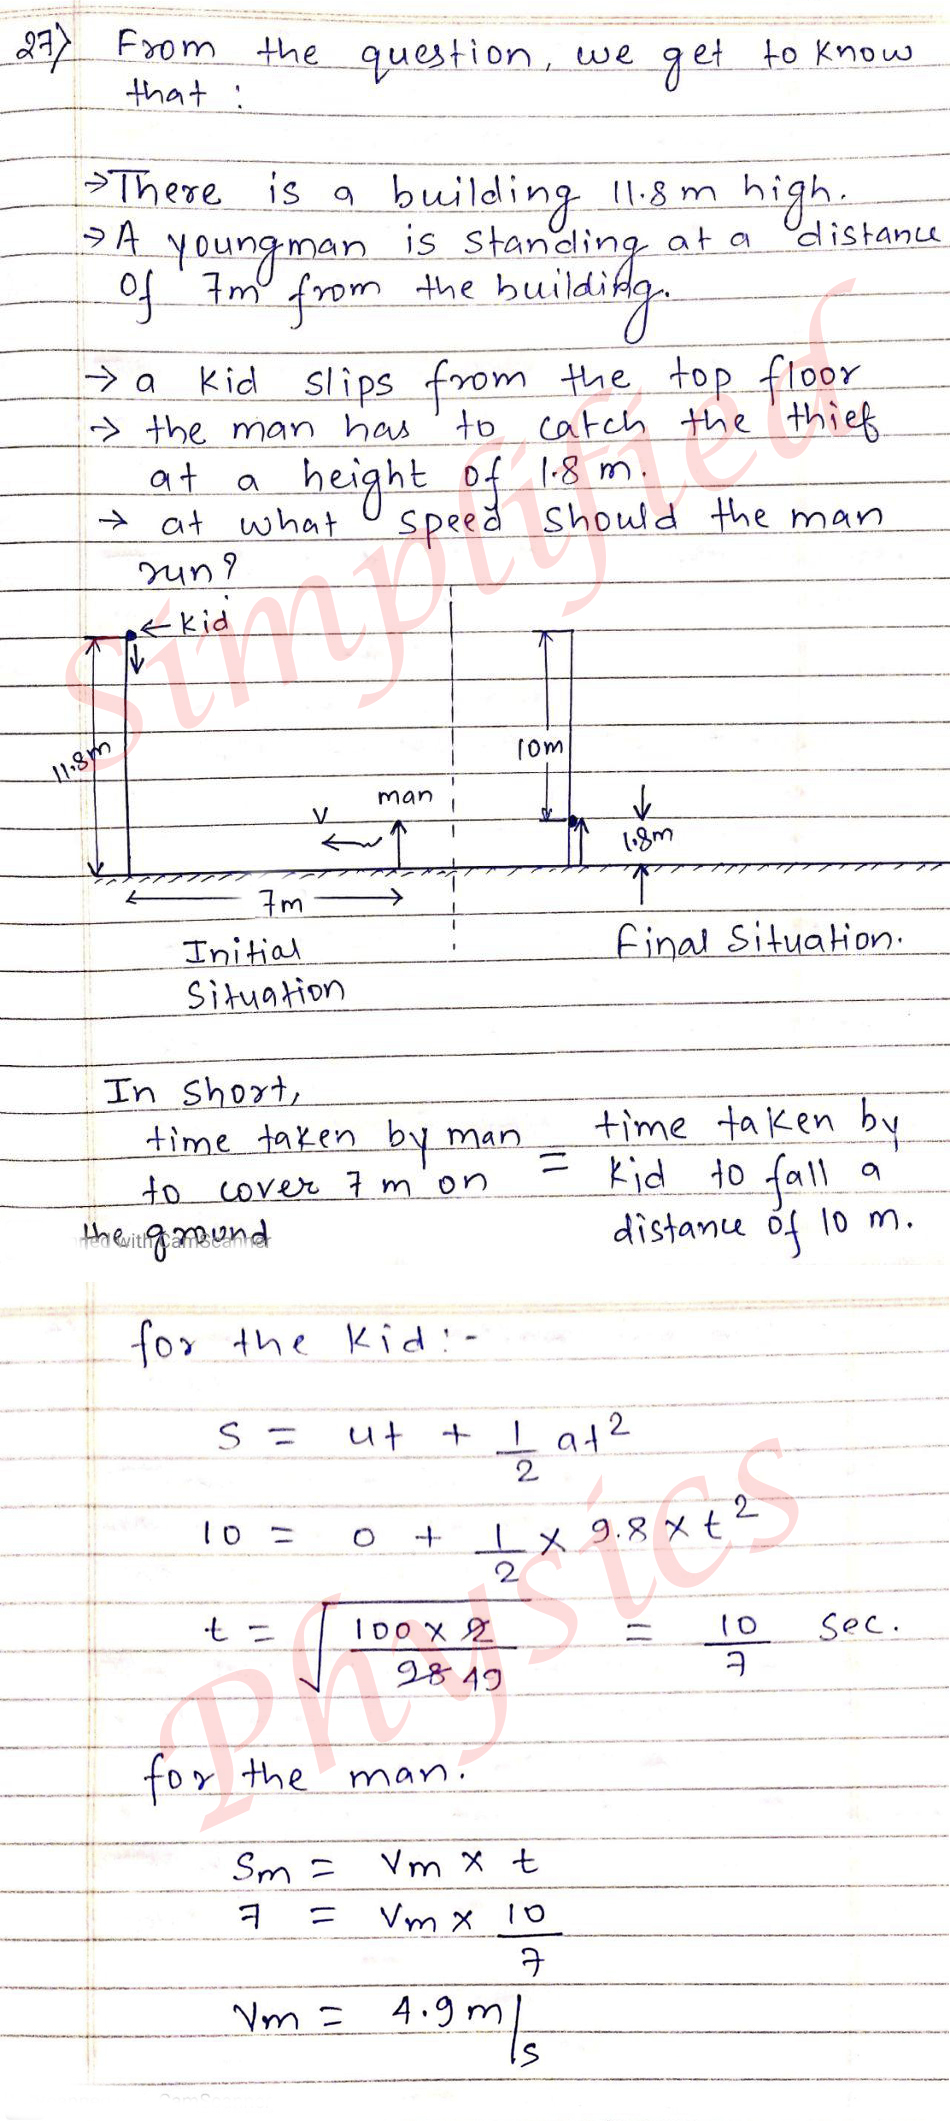 27) From the question, we get to know
that :
→ There is a building 11.8 m high.
→ A youngman is standing at a distance
of 7m from the building.
→ a kid slips from the top floor
→ the man has to catch the thief
at a height of 1.8 m.
→ at what speed should the man
run?
← kid
11.8m
10m
man
v
1.8m
7m
Initial
Situation
final Situation.
In short,
time taken by man = time taken by
to cover 7 m on kid to fall a
the ground distance of 10 m.
ned with CamScanner
for the kid :-
S = ut + 1/2 at²
10 = 0 + 1/2 × 9.8 × t²
t = √(100 × 2 / 98 49) = 10/7 sec.
for the man.
Sm = Vm × t
7 = Vm × 10/7
Vm = 4.9 m/s
Simplified
Physics